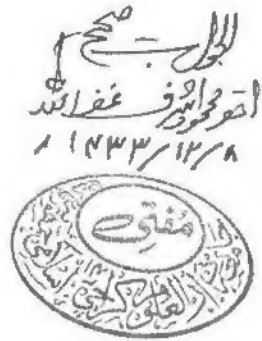 الجواب صحیح
احقر محمود اشرف غفر اللہ
۱۴۳۳/۱۲/۸
مفتی
دار العلوم کراچی